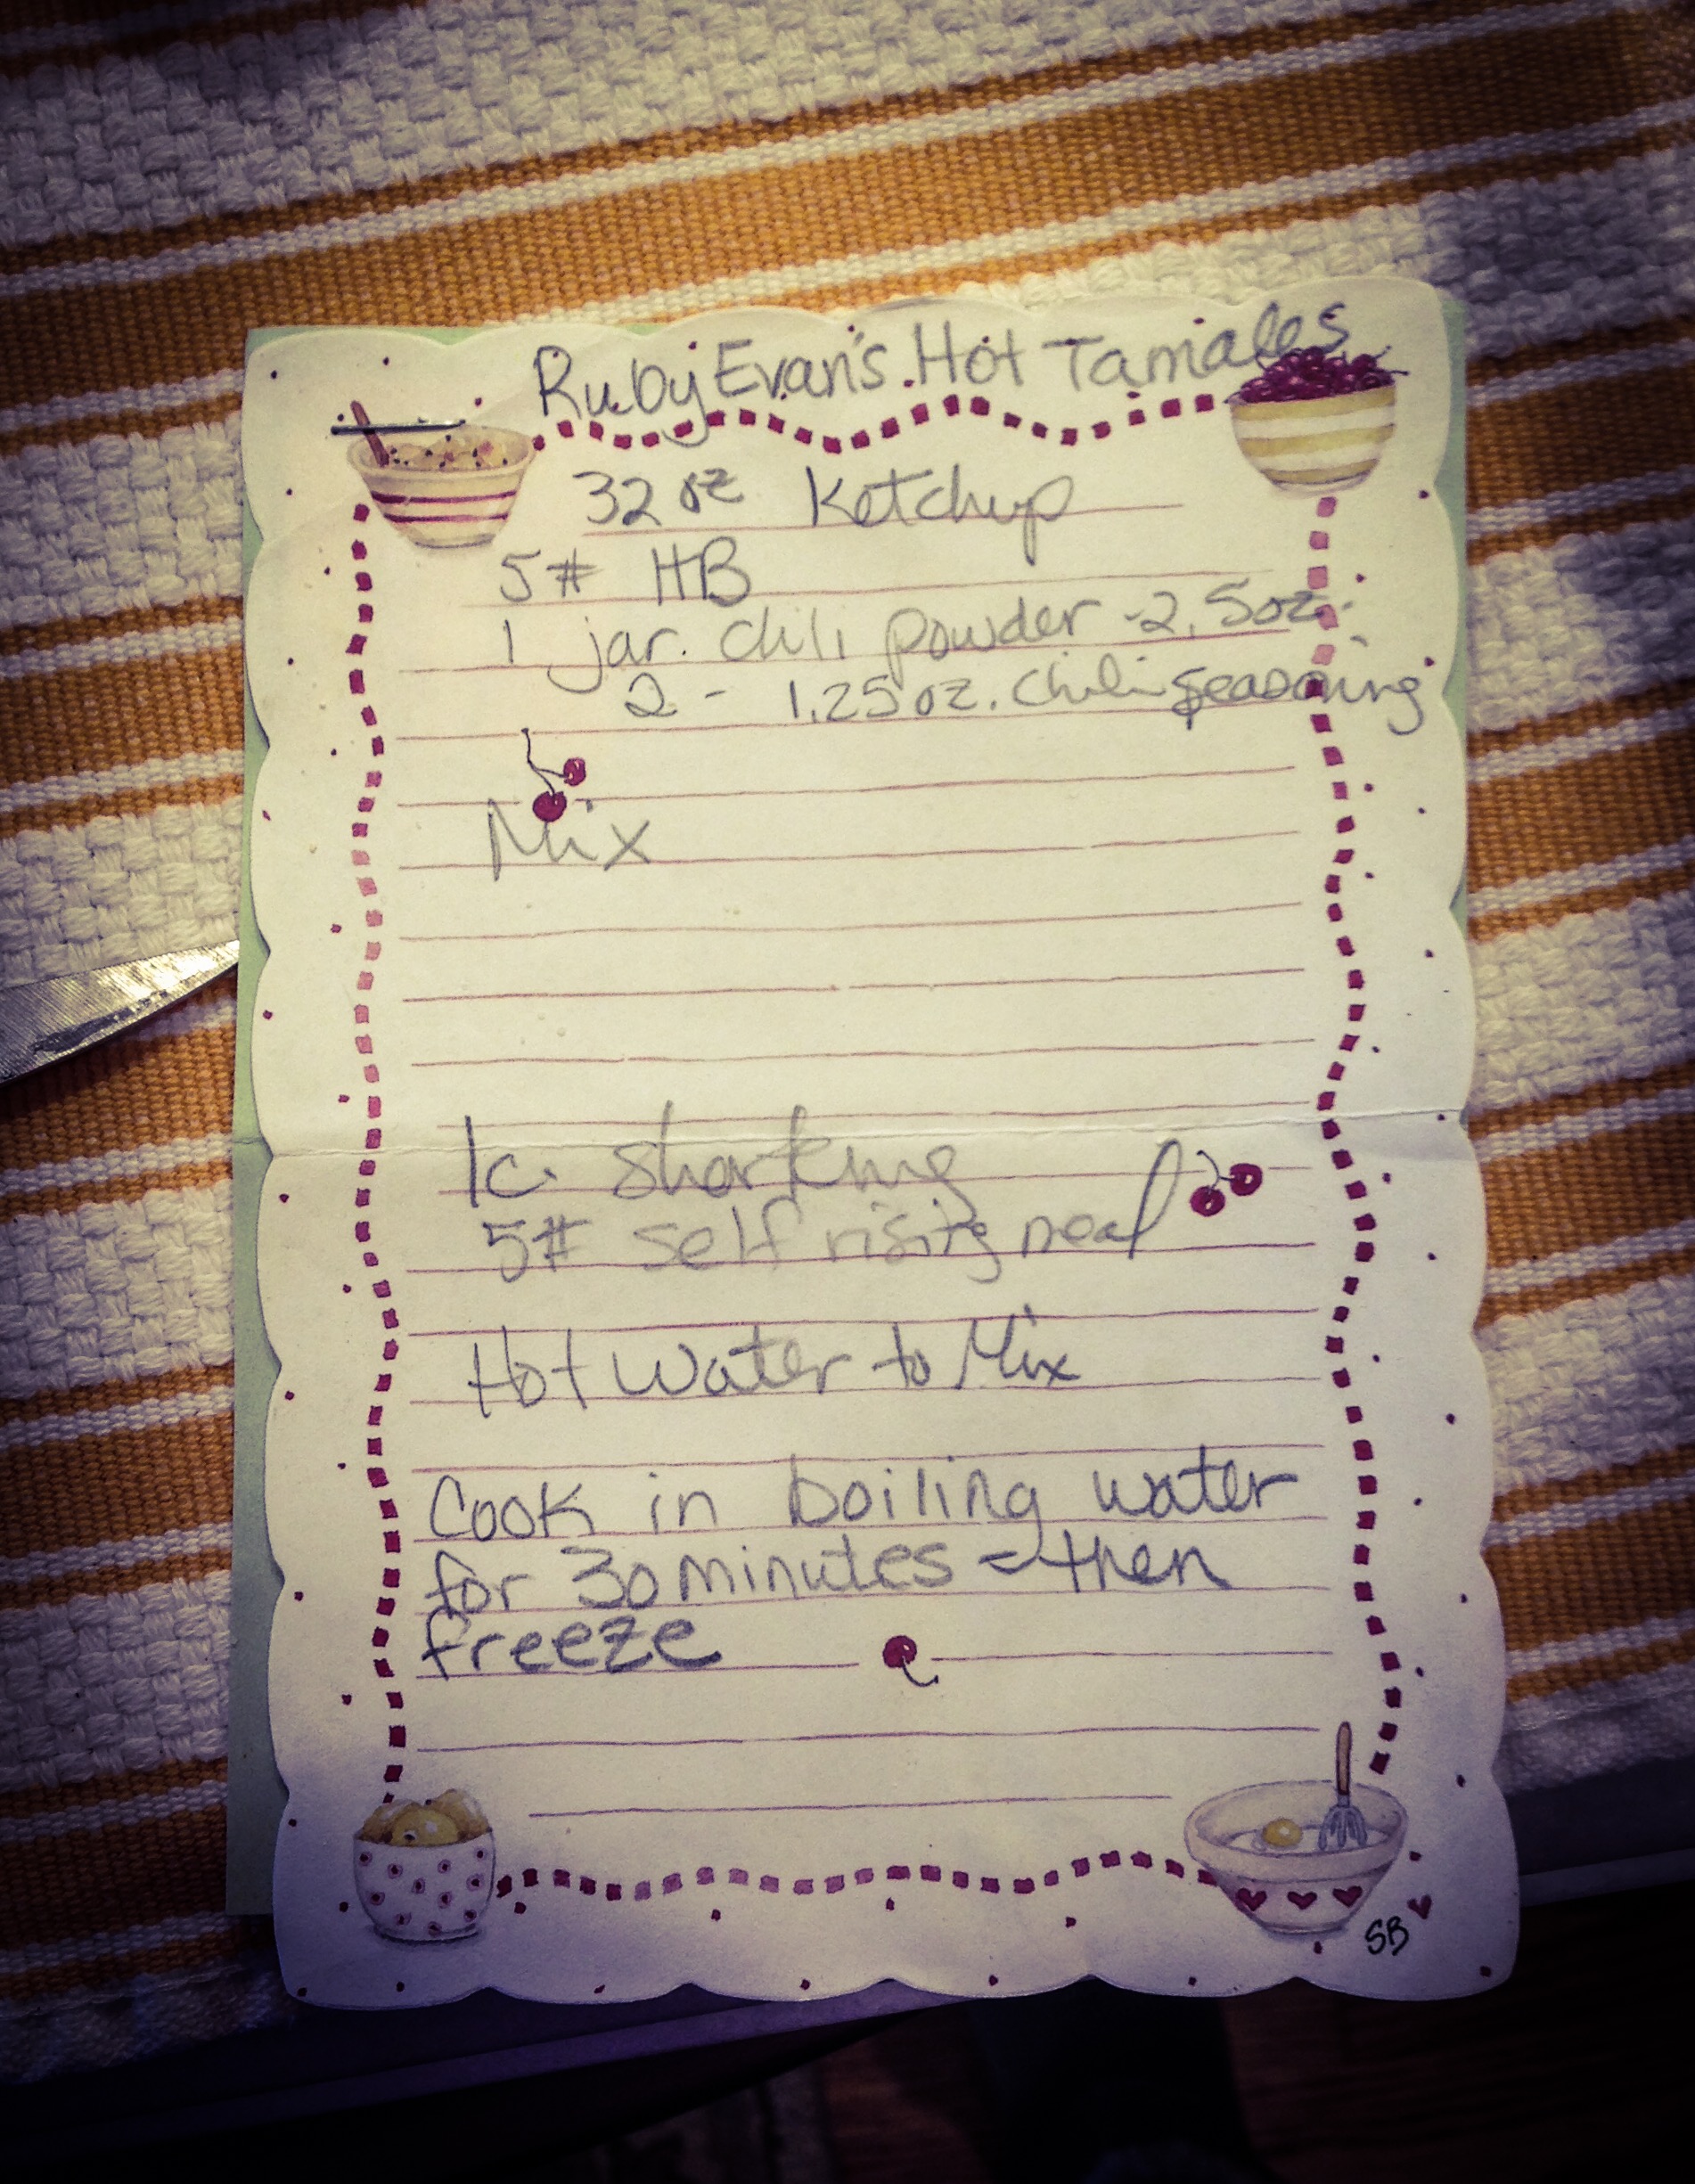 Ruby Evan's Hot Tamales
32 oz Ketchup
5# HB
1 jar. chili powder - 2.5oz.
2 - 1.25 oz. chili seasoning
Mix
1c. shortning
5# self rising meal
Hot water to Mix
Cook in boiling water
for 30 minutes - then
freeze
SB